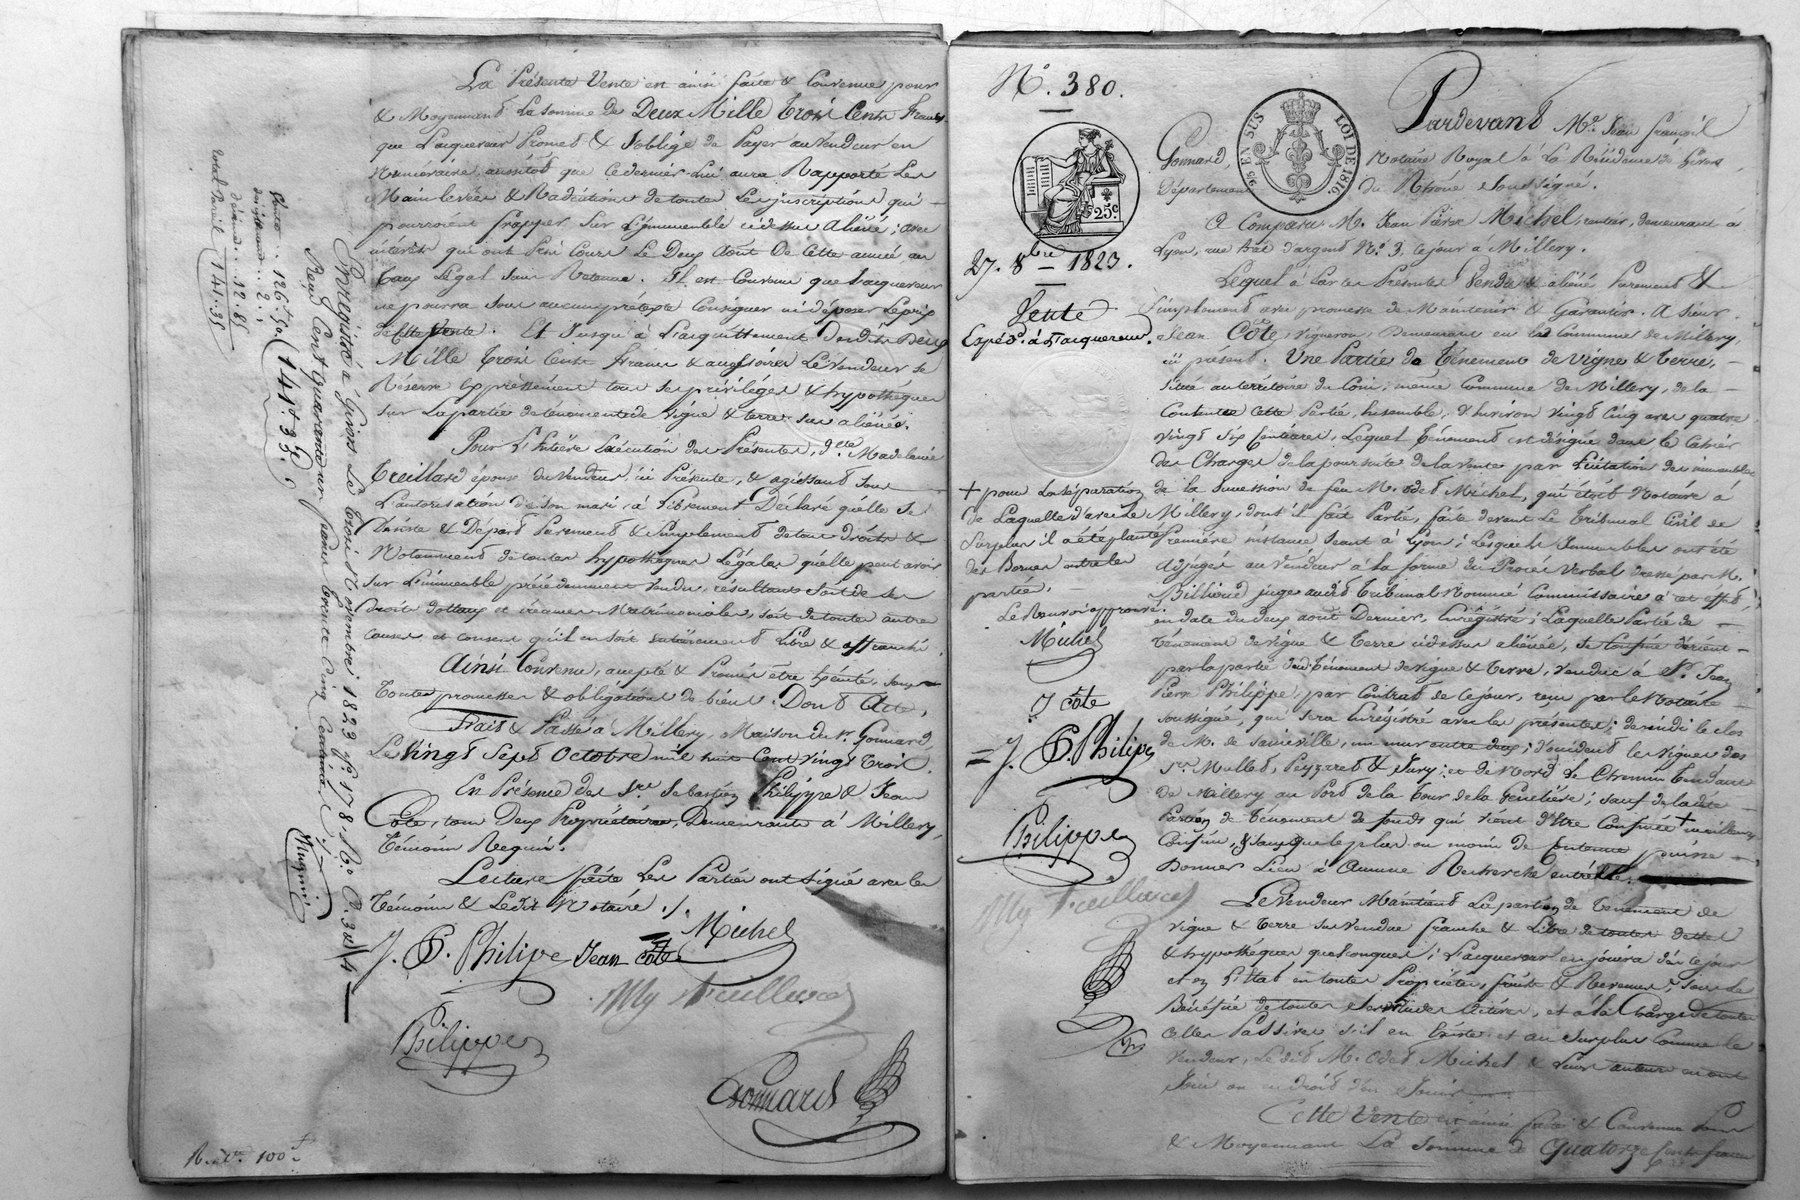 La Présente Vente est ainsi faite & Convenue pour
& Moyennant La somme de Deux Mille Trois Cents Francs
que L'acquereur Promet & S'oblige de Payer au Vendeur en
Numéraire aussitôt que ce dernier lui aura Rapporté Les
Mainlevées & Radiations de toutes Les inscriptions qui
pourroient frapper sur L'immeuble ci dessus Aliéné; avec
intérêts qui ont Pris Cours Le Deux Août De Cette année au
Taux Légal sans Retenue. Il est Convenu que L'acquereur
ne pourra sous aucun prétexte Consigner ni déposer Le prix
de Cette Vente. Et Jusqu'à L'acquittement Desdits Deux
Mille Trois Cents francs & accessoires Le Vendeur se
Réserve Expressément tous ses privilèges & hypothèques
sur La partie de ténement de vigne & terre sus aliénée.
Pour L'Entière Exécution des Présentes, d.elle Madeleine
Treillard épouse du Vendeur, ici Présente, & agissant sous
L'autorisation de son mari, a Librement Déclaré qu'elle se
Désiste & Départ Purement & Simplement de tous droits &
Notamment de toutes hypothèques Légales qu'elle peut avoir
sur L'immeuble précédemment vendu, résultants soit de ses
Droits dottaux et créances Matrimoniales, soit de toute autre
cause et consent qu'il en soit entièrement Libre & affranchi
Ainsi Convenu, accepté & Promis être Exécuté, sous
Toutes promesses & obligations de biens. Dont Acte,
Fait & Passé à Millery, Maison du Sr. Gonnard,
Le Vingt Sept Octobre mil huit Cent Vingt Trois.
En Présence des Srs. Sebastien Philippe & Jean
Cote, tous Deux Propriétaires, Demeurants à Millery,
Témoins Requis.
Lecture faite Les Parties ont Signé avec Les
Témoins & Ledit Notaire ./.
Michel
J. P. Philipe Jean Côte
My Treillard
Philippe
Gonnard
Enregistré à Givors Le trois Novembre 1823 fo. 178. Ro. C. 3 & 4
Reçu Cent quarante un francs trente cinq centimes
Vente .. 126,50
12.85
Total Pareil 141.35
141.35
100f
No. 380.
95 EN SUS LOI DE 1816
25c
27. 8bre 1823.
Vente
Expéd. à L'acquereur.
Pardevant Me. Jean François
Gonnard, Notaire Royal à La Résidence de Givors
Département du Rhône Soussigné.
A Comparu M. Jean Pierre Michel, rentier, demeurant a
Lyon, rue trait d'argent No. 3, ce jour à Millery.
Lequel à par ces Présentes Vendu & aliéné Purement &
Simplement avec promesse de Maintenir & Garantir. A Sieur
Jean Côte, vigneron Demeurant en La Commune de Millery,
ici présent. Une Partie de Ténement de Vigne & Terre,
située au territoire du Coin, même Commune de Millery, de la
Contenue Cette Partie, Ensemble, d'Environ vingt cinq ares quatre
vingt six Centiares, Lequel Ténement est désigné dans le Cahier
des Charges de la poursuite de la Vente par Licitation des immeubles
de la succession de feu M. Odet Michel, qui étoit Notaire à
Millery, dont il fait Partie, faite devant Le Tribunal Civil de
Première instance Séant à Lyon; Lesquels Immeubles ont été
adjugés au Vendeur à La forme du Procès Verbal dressé par M.
Billioud juge audit Tribunal Nommé Commissaire à cet effet,
en date du deux août Dernier, Enrégistré; Laquelle Partie de
Ténement de vigne & Terre cidessus aliénée, se Confine d'orient
par la partie dudit Ténement de vigne & terre, vendue à Sr. Jean
Pierre Philippe, par Contrat de ce jour, reçu par le Notaire
soussigné, qui sera Enrégistré avec les présentes; de midi le clos
de M. de Saineville, un mur entre deux; d'occident les vignes des
Srs. Mullet, Peyzaret & Jury; et de Nord Le Chemin tendant
de Millery au Port de la Tour de la Genetière; sauf de ladite
Partie de Ténement de fonds qui vient d'être Confinée + meilleurs
Confins, & sans que le plus ou moins de Contenue puisse
Donner Lieu à Aucune Recherche entr'elles.
Le Vendeur Maintient La partie de Ténement de
vigne & terre sus Vendue franche & Libre de toutes dettes
& hypothèques quelconques; L'acquereur en jouira dès ce jour
et en L'état en toute Propriété, fruits & Revenus, sous Le
Bénéfice de toutes Servitudes actives, et à la Charge de toutes
Celles Passives s'il en Existe et au Surplus Comme le
Vendeur, Ledit M. Odet Michel & Leurs auteurs en ont
Joui ou eu droit d'en Jouir.
Cette Vente est ainsi faite & Convenue Pour
& Moyennant La Somme de Quatorze Cents francs
+ pour La séparation
de Laquelle d'avec le
Surplus il a été planté
des Bornes entre les
parties.
Le Renvoi approuvé.
Michel
J. côte
= J. P. Philipe
Philippe
My Treillard